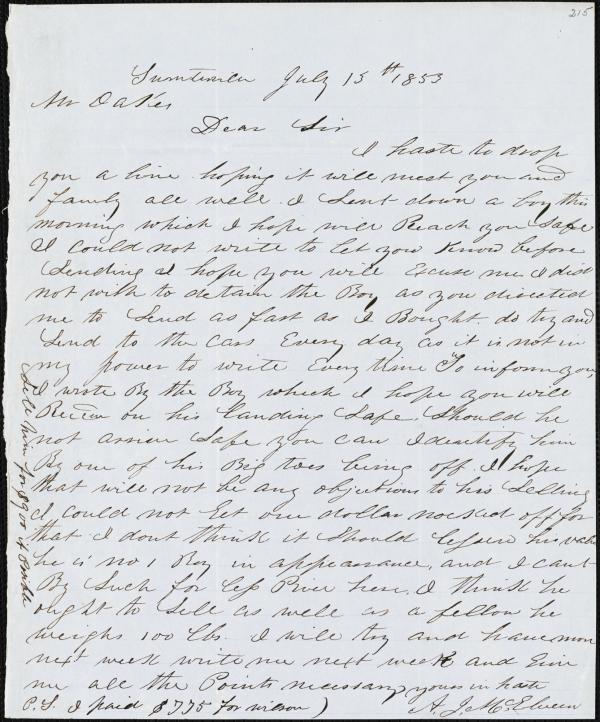 215
Sumterville July 13th 1853
Mr Oakes
Dear Sir
I haste to drop
you a line hoping it will meet you and
family all well. I Sent down a boy this
morning which I hope will Reach you Safe
I could not write to let you Know before
Sending I hope you will Excuse me I did
not wish to detain the Boy as you directed
me to Send as fast as I Bought. do try and
Send to the cars Every day as it is not in
my power to write Every time To inform you,
I wrote By the Boy which I hope you will
Recieve on his landing Safe. Should he
not arrive Safe you can Identify him
By one of his Big toes being off. I hope
that will not be any objections to his Selling
I could not Get one dollar nocked off for
that I dont think it Should lessen his value
he is no 1 Boy in appearance, and I cant
By Such for less Price here, I think he
ought to Sell as well as a fellow he
weighs 100 lbs. I will try and have more
next week write me next week and Give
me all the Points necessary yours in haste
P.S. I paid $775 for wilson) A. J. McElveen
Sell him for $900 if posible